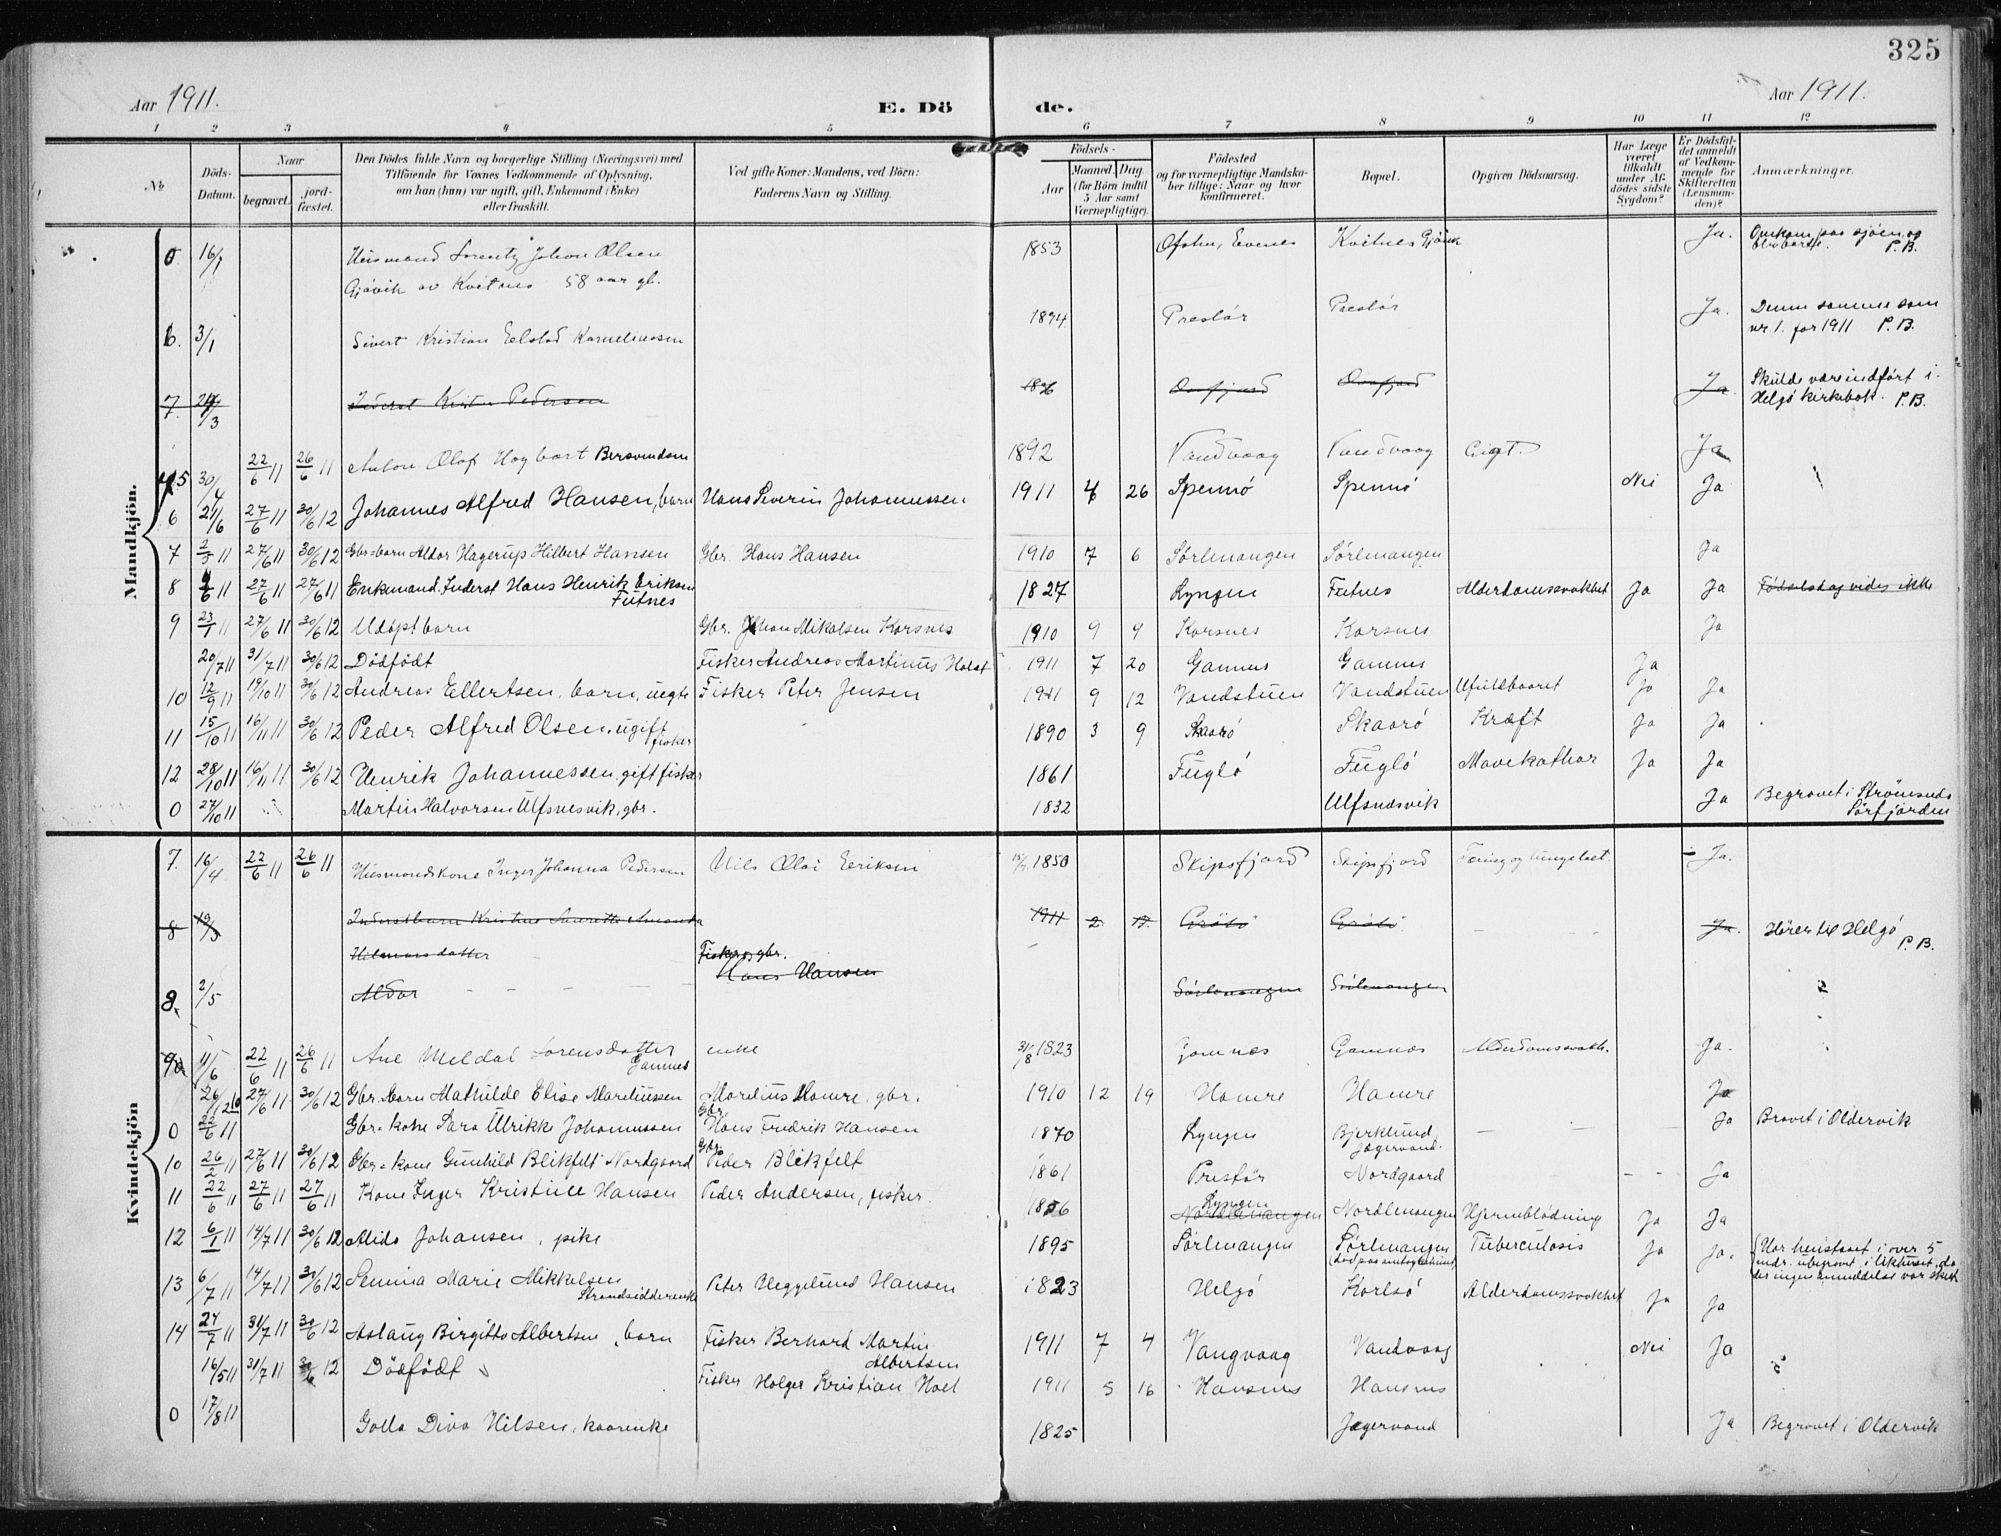 325
Aar 1911.
E. Dö de.
Aar 1911.
1 2 3 4 5 6 7 8 9 10 11 12
No
Döds-Datum.
Naar
begravet.
jord-fæstet.
Den Dödes fulde Navn og borgerlige Stilling (Næringsvei) med
Tilföiende for Voxnes Vedkommende af Oplysning,
om han (hun) var ugift, gift, Enkemand (Enke)
eller fraskilt.
Ved gifte Koner: Mandens, ved Börn:
Faderens Navn og Stilling.
Födsels-
Aar
Maaned. Dag.
(for Börn indtil
5 Aar samt
Værnepligtige).
Födested
og for værnepligtige Mandska-
ber tillige: Naar og hvor
konfirmeret.
Bopæl.
Opgiven Dödsaarsag.
Har Læge
været
tilkaldt
under Af-
dödes sidste
Sygdom?
Er Dödsfal-
det anmeldt
af Vedkom-
mende for
Skifteretten
(Lensman-
den)?
Anmærkninger.
Mandkjön.
0 16/1 Husmand Lorentz Johan Olsen 1853 Ofohn, Evenes Kvitnes Gjövik Ja. Omkom paa sjöen og
Gjövik av Kvitnes 58 aar gl. P.B.
6. 3/1 Sivert Kristian Elstad Korneliussen 1894 Prestör Prestör Ja. Denne sammes som
nr. 1. for 1911 P.B.
7. 24/3 Inderst Kristen Pedersen Ja Skulde være indfört i
Helgö kirkebok. P.B.
5 30/4 22/6 11 26/6 11 Anton Olaf Hagbart Bersvendsen 1892 Vandvaag Vandvaag Gigt. Ja
6 21/6 27/6 11 30/6 12 Johannes Alfred Hansen, barn Hans Severin Johannessen 1911 4 26 Spennö Spennö Nei Ja
7 2/5 11 27/6 11 30/6 12 Gbr-barn Aldor Hagerup Hilbert Hansen Gbr. Hans Hansen 1910 7 6 Sörlenangen Sörlenangen Ja
8 4/6 11 27/6 11 27/6 11 Enkemand. Inderst Hans Henrik Eriksen 1827 Lyngen Futnes Alderdomssvakhet Ja Ja Födselsdag vides ikke
Futnes
9 23/1 11 27/6 11 30/6 12 Udöpt barn Gbr. Johan Mikalsen Korsnes 1910 9 9 Korsnes Korsnes Ja
20/7 11 31/7 11 30/6 12 Dödfödt Fisker Andreas Martinus Holst 1911 7 20 Gamnes Gamnes Ja
10 12/9 11 19/10 11 30/6 12 Andreas Ellertsen, barn, uegte Fisker Peter Jensen 1911 9 12 Vandstuen Vandstuen Ufuldbaaret Ja Ja
11 15/10 11 16/11 11 30/6 12 Peder Alfred Olsen, ugift 1890 3 9 Skaarö Skaarö Kræft Ja Ja
fisker
12 28/10 11 16/11 11 30/6 12 Henrik Johannessen, gift fisker 1861 Fuglö Fuglö Mavekathar Ja Ja
0 27/10 11 Martin Halvorsen Ulfsnesvik, gbr. 1832 Ulfsnesvik Ja Begravet i Strömsnes
Sörfjorden
Kvindekjön
7. 16/4 22/6 11 26/6 11 Husmandskone Inger Johanna Pedersen Nils Olai Eriksen 1850 Skipsfjord Skipsfjord Tæring og lungebet. Ja.
8 19/3 Inderstbarn Kristine Laurette Amanda 1911 2 17 Grötö Grötö Ja. Hörer til Helgö
Hilmarsdatter P.B.
Fisker og gbr.
8. 2/5 Aldor Hans Hansen Sörlenangen Sörlenangen
9 11/6 22/6 11 26/6 11 Ane Meldal Sorensdatter enke 31/8 1823 Gamnæs Gamnæs Alderdomssvakh. Ja.
Gamnes
26/12 10 27/6 11 30/6 12 Gbr.-barn Mathilde Elise Mareliussen Marelius Hamre, gbr. 1910 12 19 Hamre Hamre Ja
0 22/6 11 Gbr-kone Sara Ulrikke Johannessen Gbr Hans Fredrik Hansen 1870 Lyngen Bjerklund Jægervand. Ja Bravet i Oldervik
10 26/2 11 27/6 11 30/6 12 Gbr-kone Gunhild Blikfelt Nordgaard Gbr. Peder Blikfelt 1861 Prestör Nordgaard Ja
11 22/6 11 27/6 11 27/6 11 Kone Inger Kristine Hansen Peder Andersen, fisker. 1856 Lyngen Nordlenangen Nordlenangen Hjerneblödning Ja Ja
12 6/1 11 14/7 11 30/6 12 Alida Johansen, pike 1895 Sörlenangen Sörlenangen Tuberculosis Ja Ja. Har henstaaet i over 5
(död paa amtsygehuset) mdr. ubegravet i likhuset, da
der ingen anmeldelse var skedt
13 6/7 11 14/7 11 30/6 12 Lemina Marie Mikkelsen Peter Heggelund Hansen 1823 Helgö Korlsö Alderdomssvakhet Ja Ja
Strandsidderenke
14 24/7 11 31/7 11 30/6 12 Aslaug Birgitte Albertsen, barn Fisker Berhard Martin 1911 7 4 Vangvaag Vandvaag Nei Ja
Albertsen
16/5 11 31/7 11 30/6 12 Dödfödt Fisker Holger Kristian Holt 1911 5 16 Hansnes Hansnes
0 17/8 11 Golla Diva Nilsen, kaarenke 1825 Jægervand Ja Begravet i Oldervik